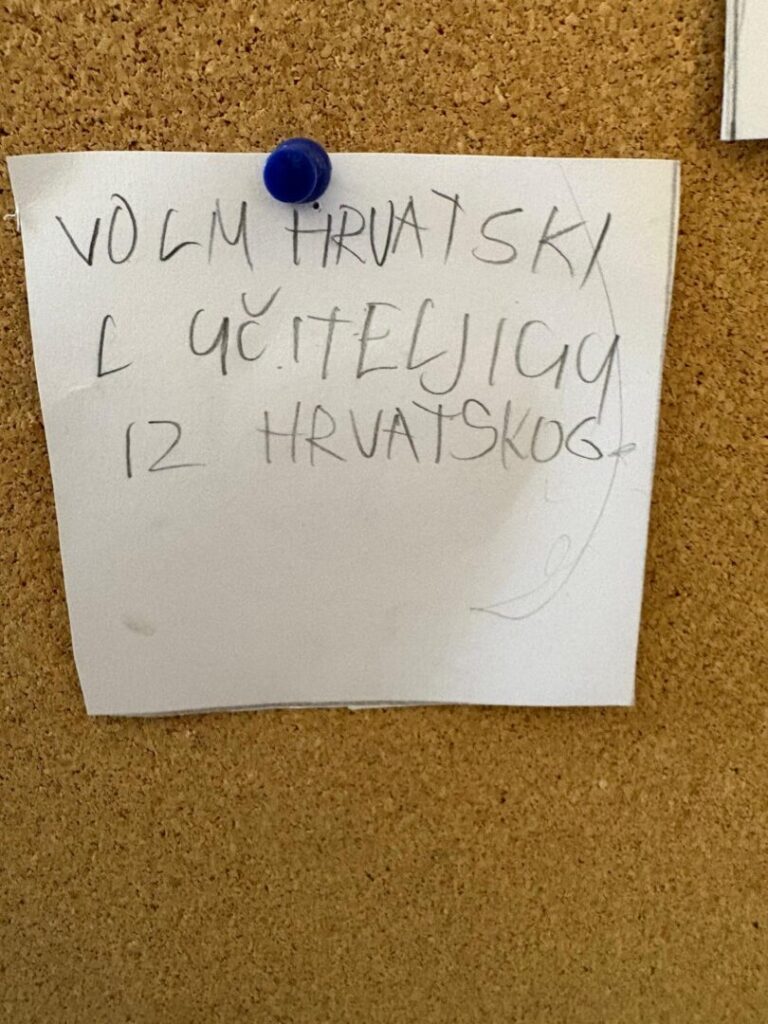 VOLM HRVATSKI
L UČITELJIGU
IZ HRVATSKOG